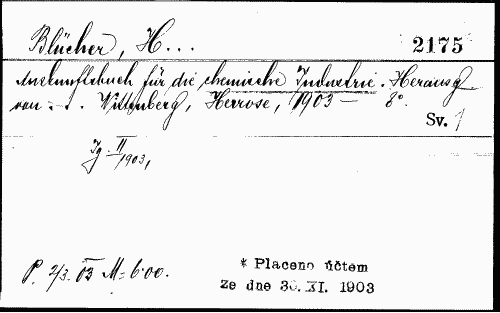 Blücher, H...
2175
Auskunftsbuch für die chemische Industrie. Herausg
von . . Wittenberg, Herrose, 1903 — 8°.
Sv. 1
Jg. II/1903,
P. 2/3. 03 M = 6.00.
* Placeno účtem
ze dne 30. XI. 1903